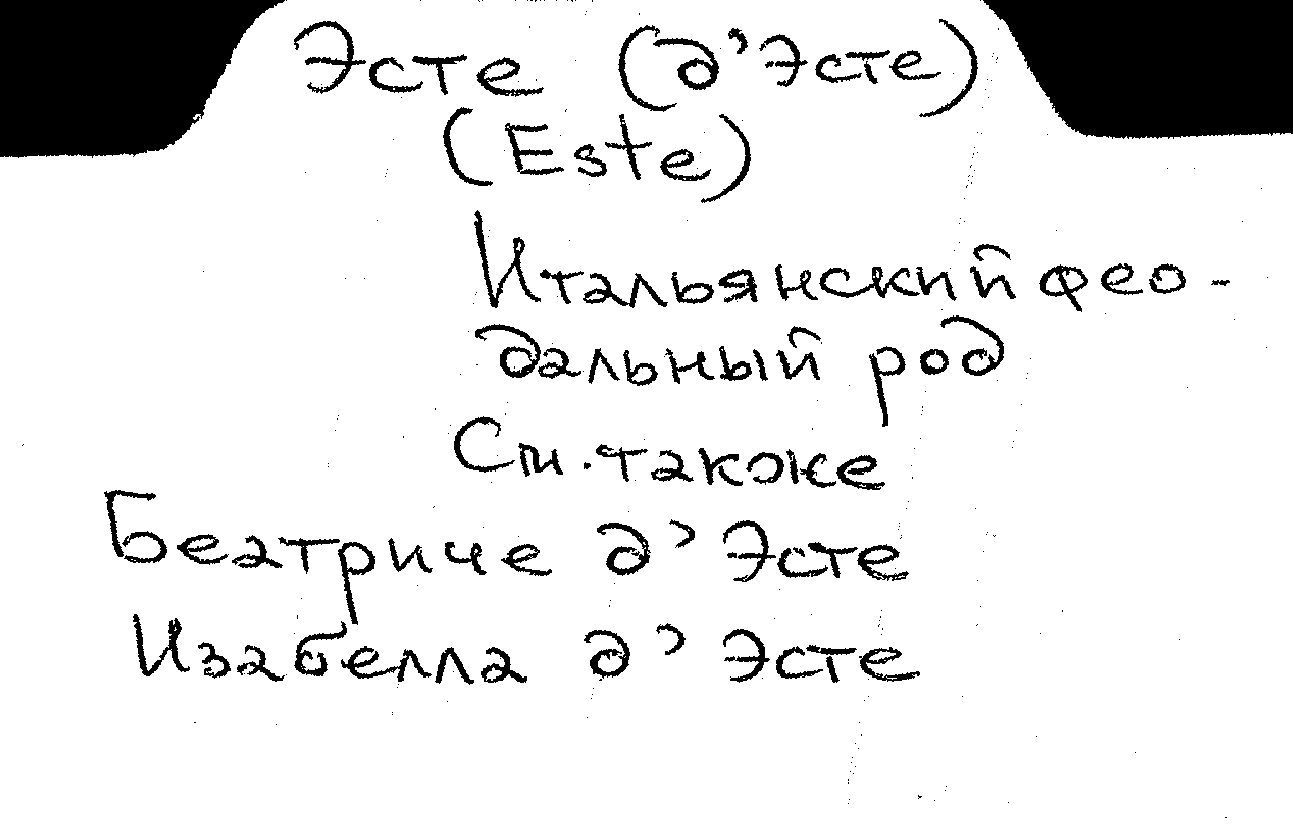 Эсте (д'Эсте)
(Este)
Итальянский фео-
дальный род
См. также
Беатриче д'Эсте
Изабелла д'Эсте